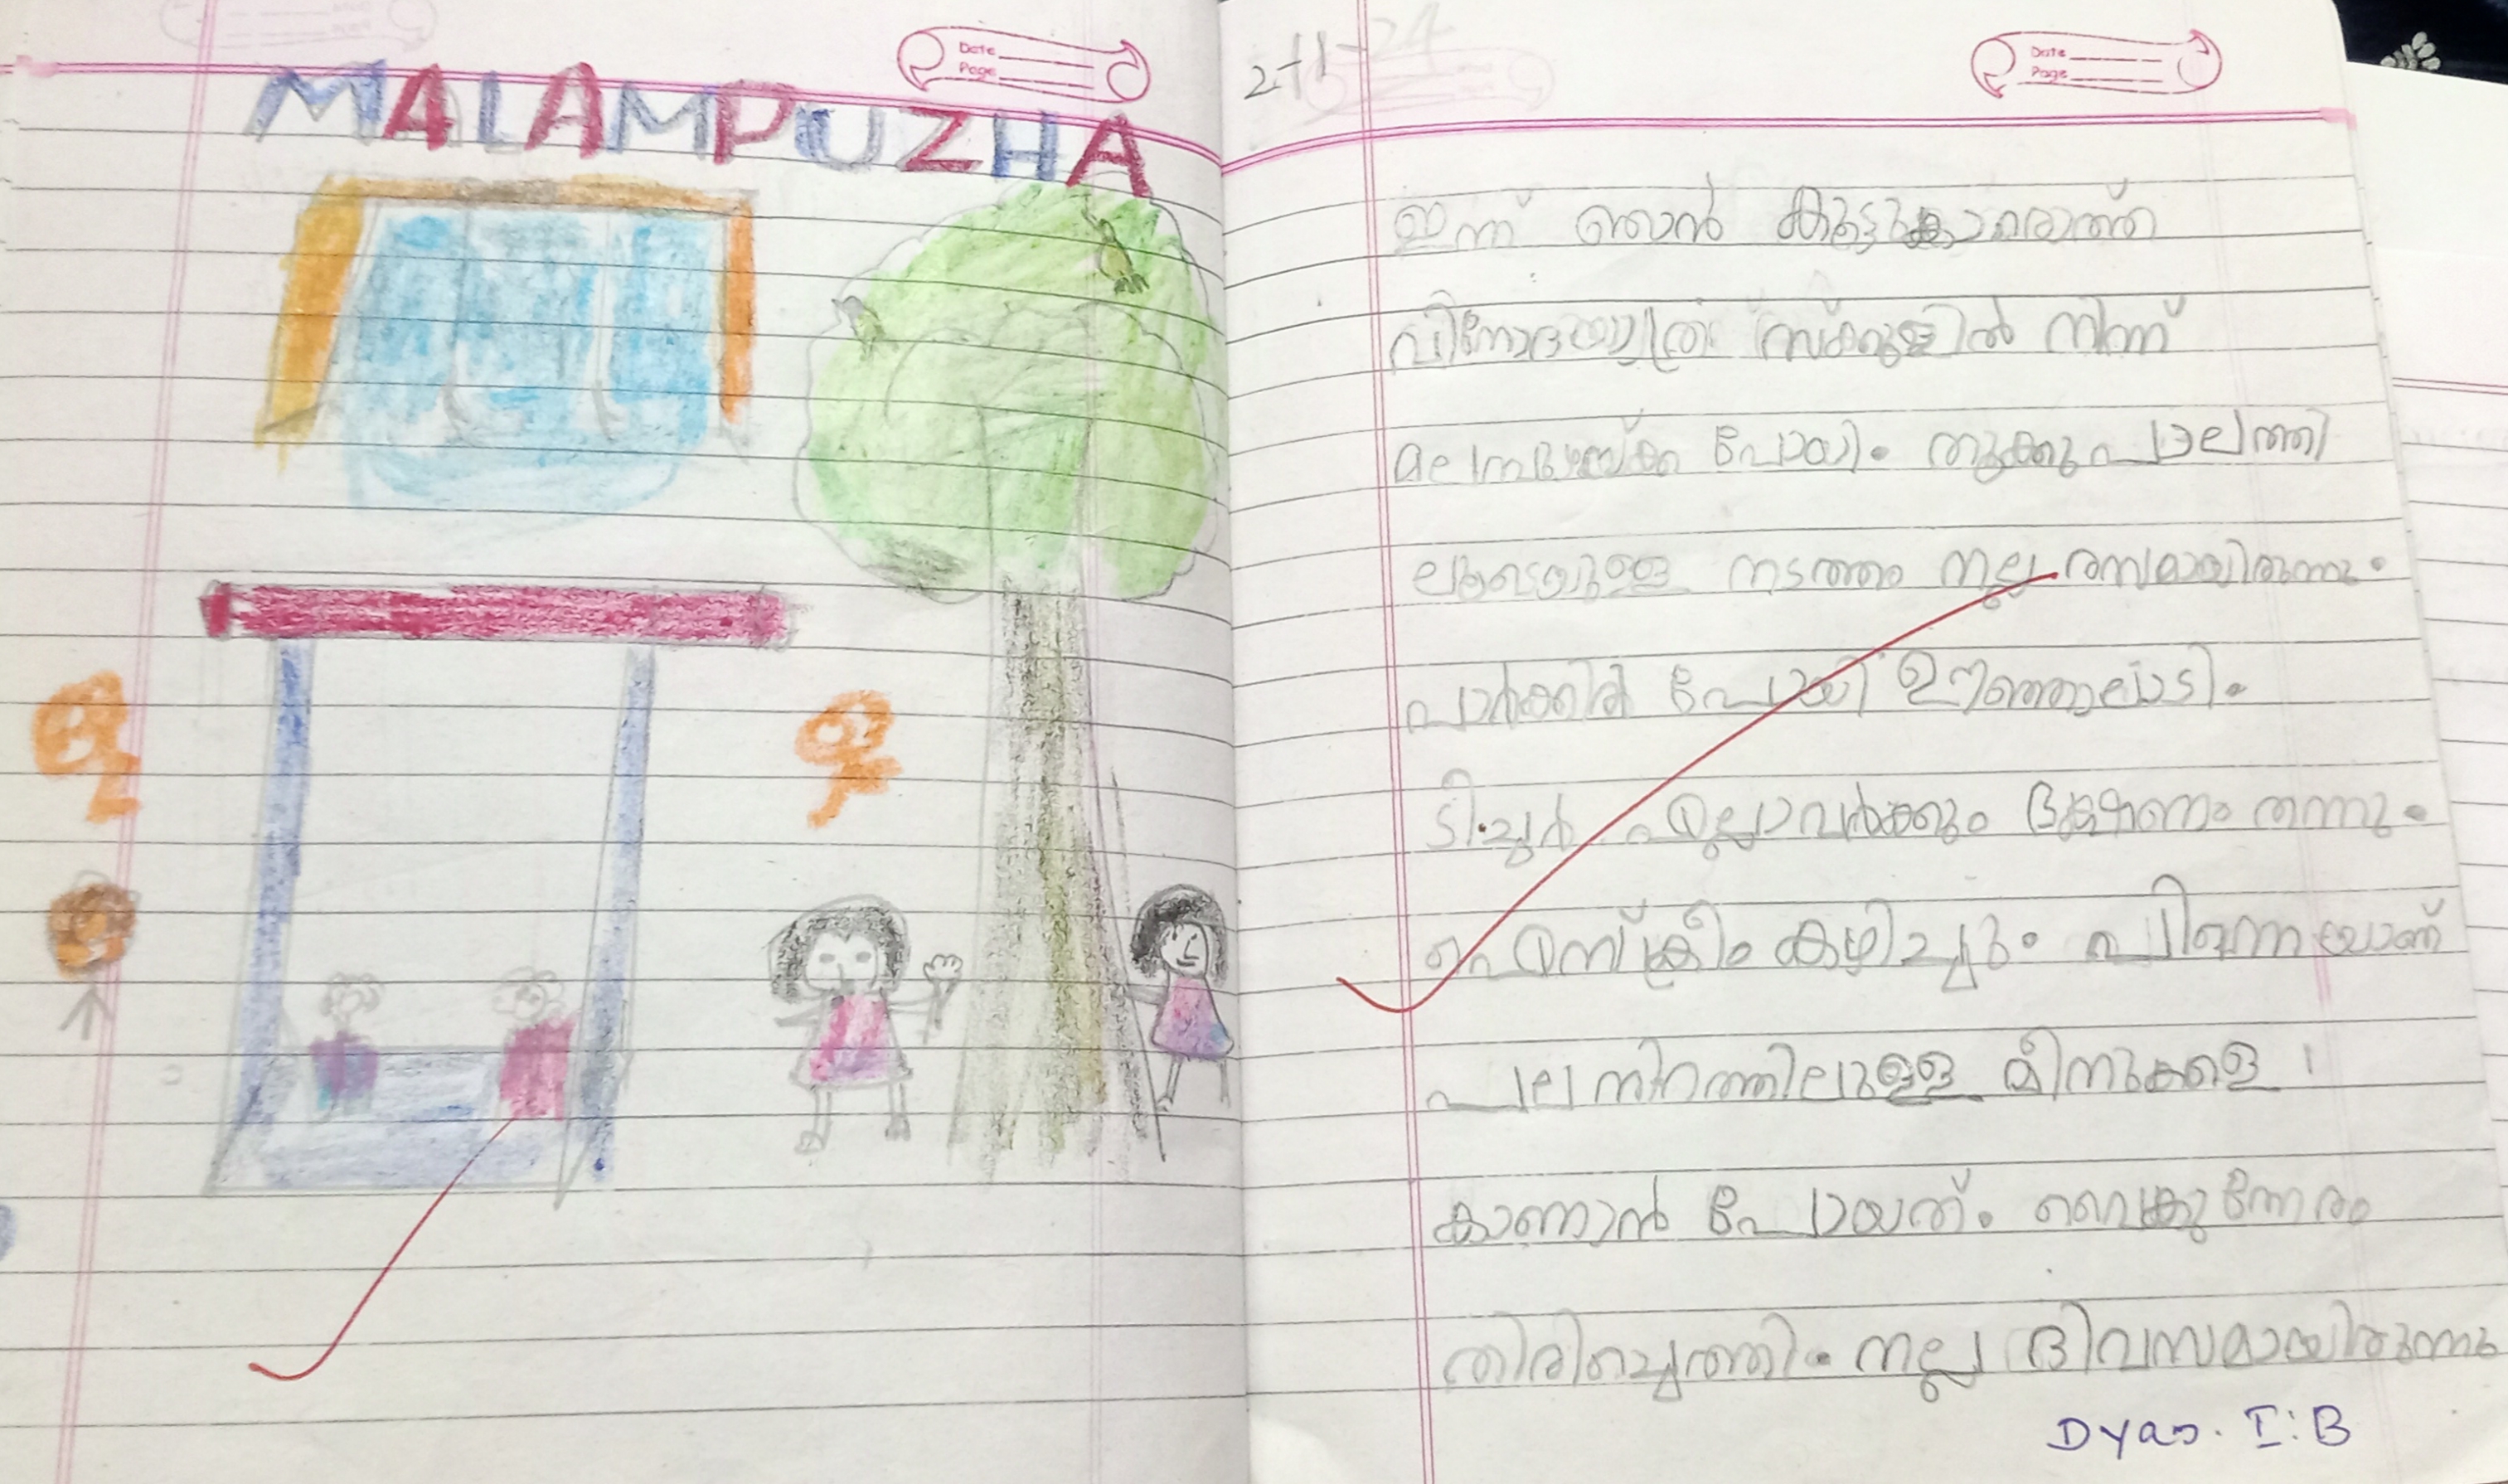 MALAMPUZHA
Date
Page
2-11-24
Date
Page
ഇന്ന് ഞാൻ കൂട്ടുകാരൊത്ത്
വിനോദയാത്ര സ്ക്കൂളിൽ നിന്ന്
മലമ്പുഴയ്ക്ക് പോയി. തൂക്കുപാലത്തി
ലൂടെയുള്ള നടത്തം നല്ല രസമായിരുന്നു.
പാർക്കിൽ പോയി ഊഞ്ഞാലാടി.
ടീച്ചർ എല്ലാവർക്കും ഭക്ഷണം തന്നു.
ഐസ്ക്രീം കഴിച്ചു. പിന്നെയാണ്
പല നിറത്തിലുള്ള മീനുകളെ
കാണാൻ പോയത്. വൈകുന്നേരം
തിരിച്ചെത്തി. നല്ല ദിവസമായിരുന്നു
I:B